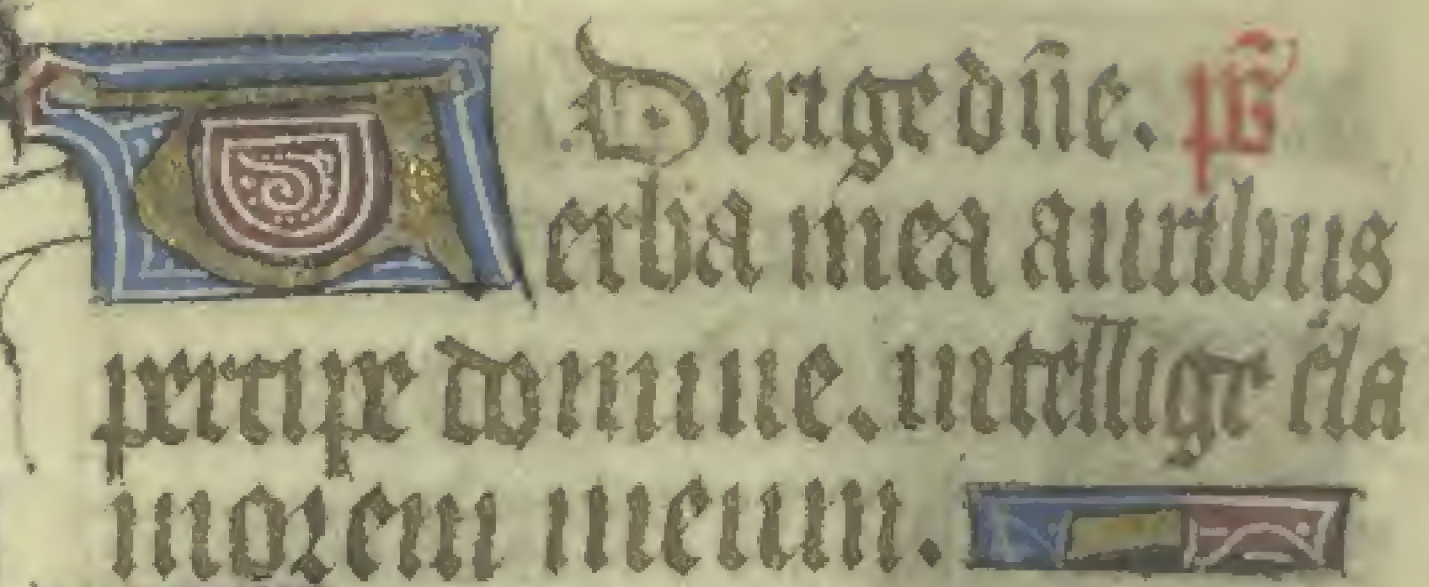 Dirige dñe. ps̄
Verba mea auribus
percipe domine. intellige cla
morem meum.